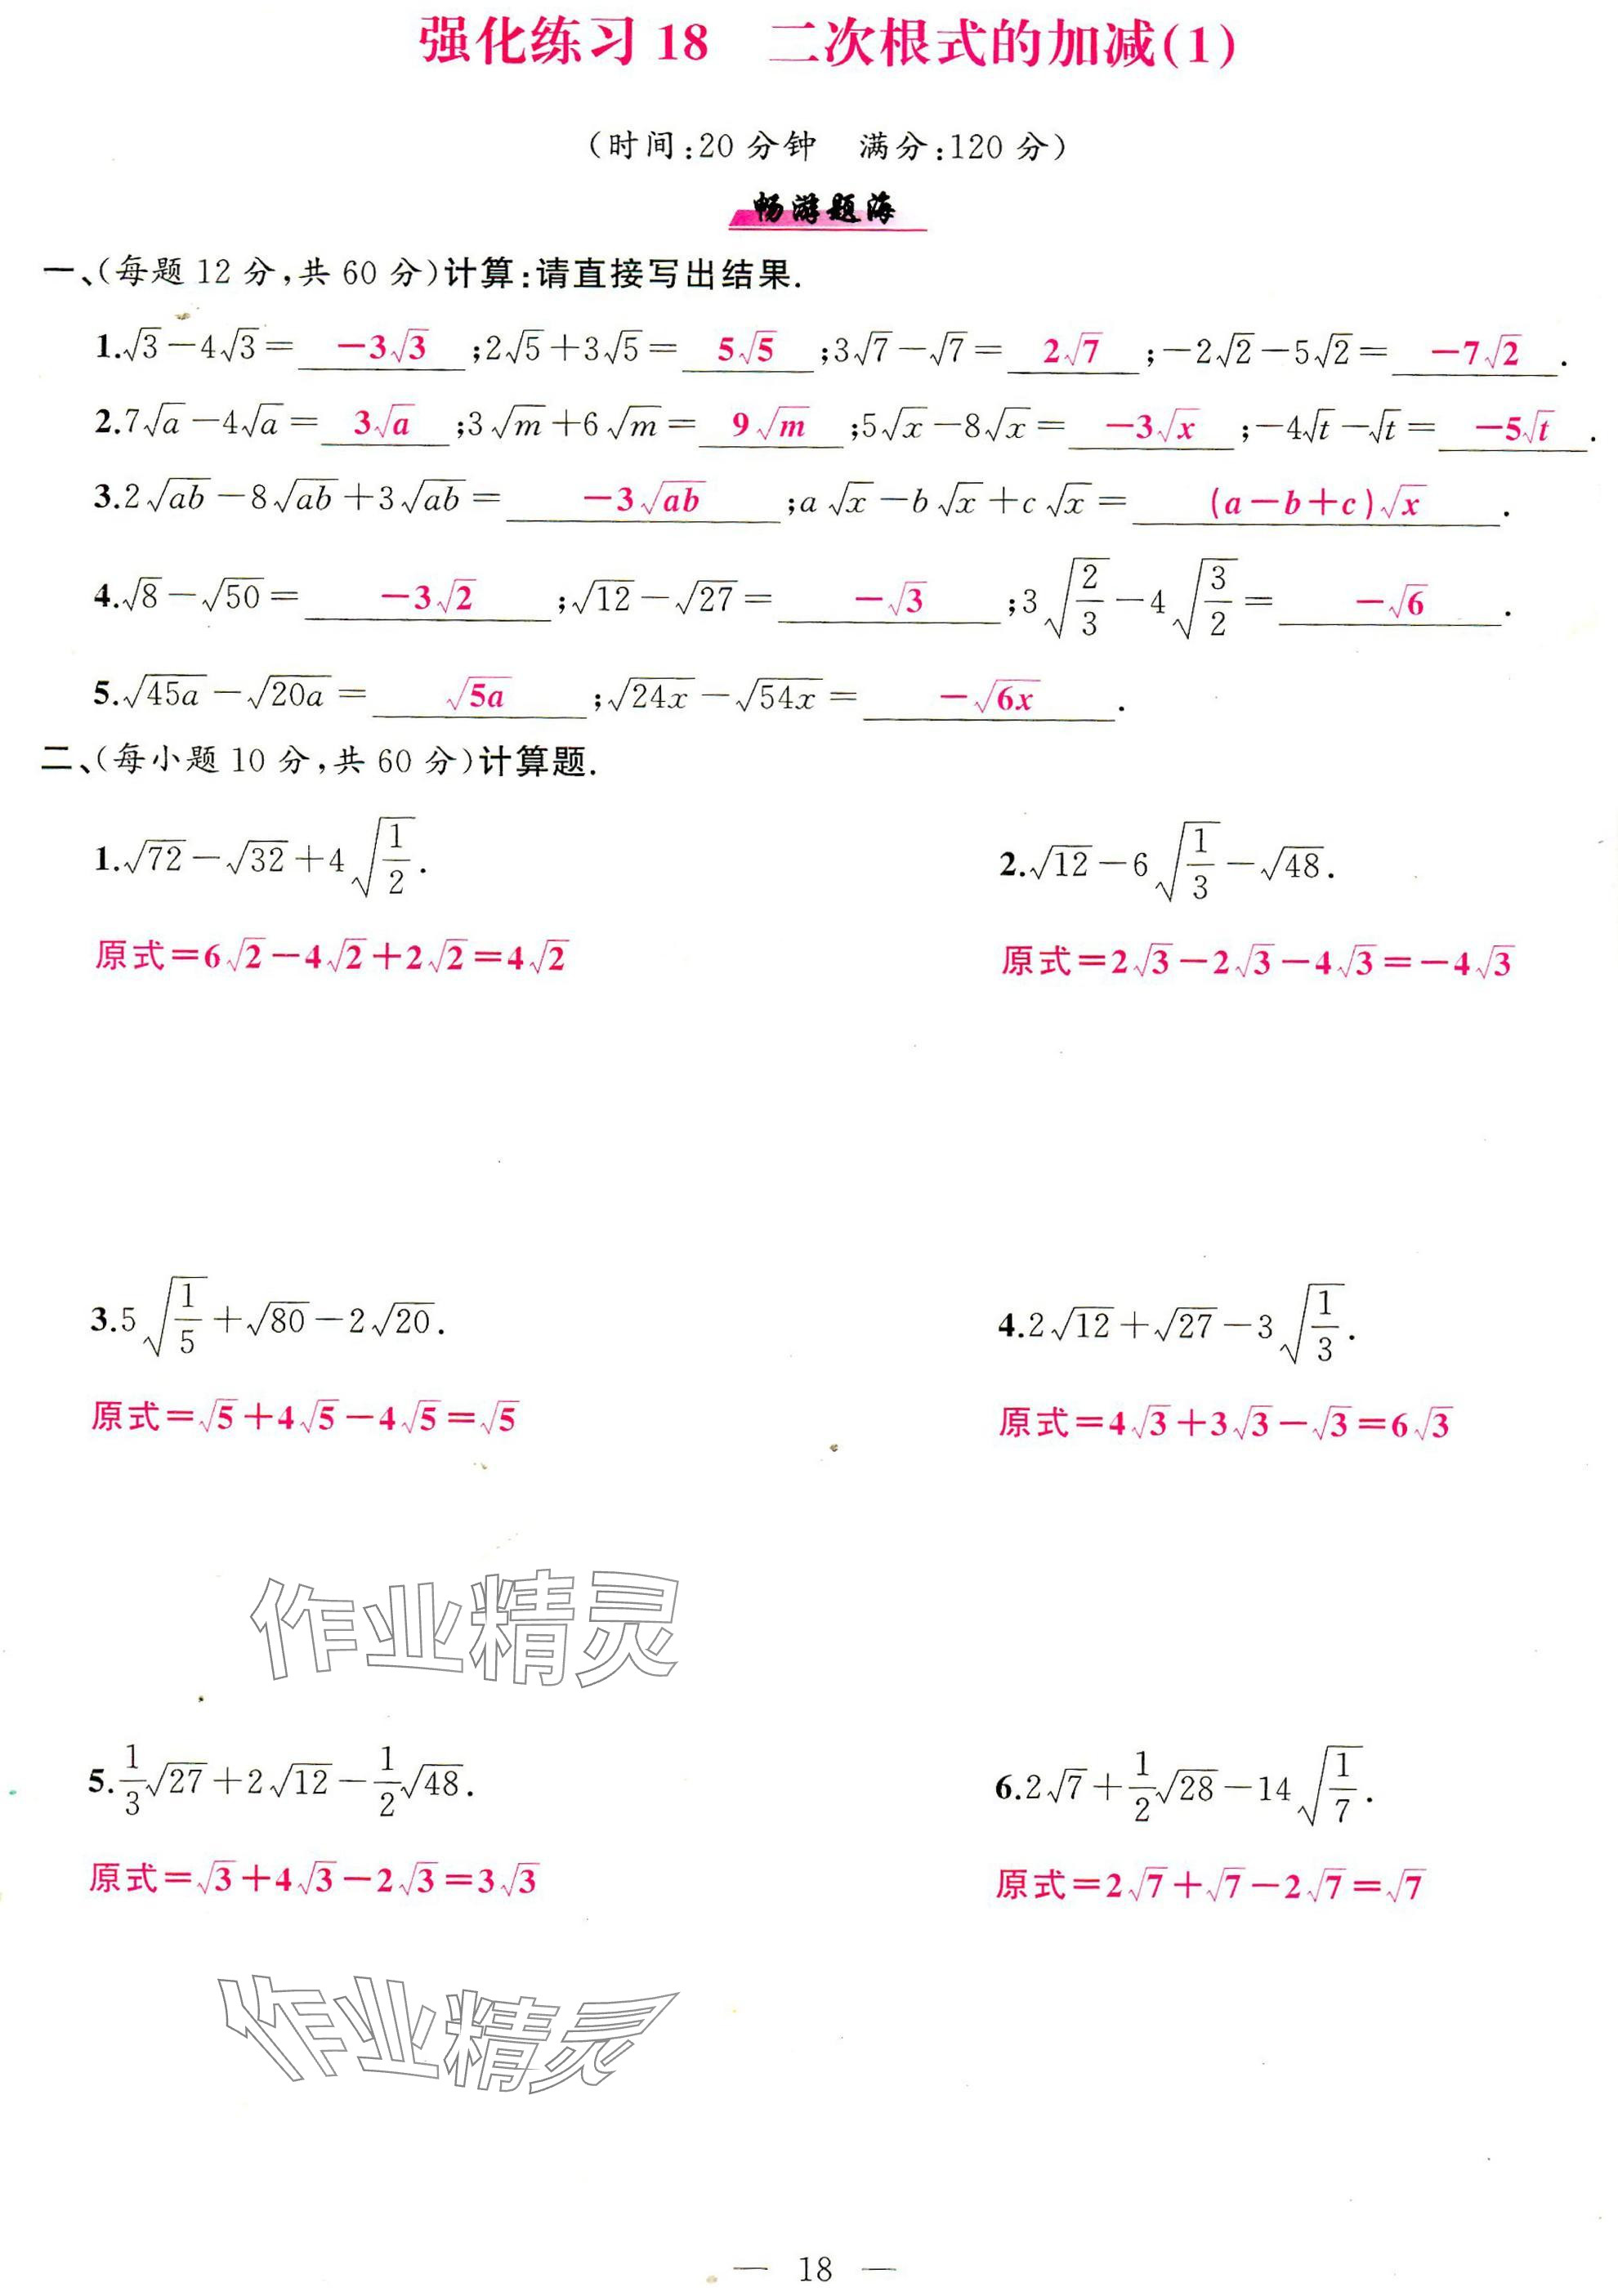 强化练习 18　二次根式的加减(1)
(时间:20 分钟　满分:120 分)
畅游题海
一、(每题 12 分,共 60 分)计算:请直接写出结果.
1.√3-4√3= -3√3 ;2√5+3√5= 5√5 ;3√7-√7= 2√7 ;-2√2-5√2= -7√2 .
2.7√a-4√a= 3√a ;3√m+6√m= 9√m ;5√x-8√x= -3√x ;-4√t-√t= -5√t .
3.2√ab-8√ab+3√ab= -3√ab ;a√x-b√x+c√x= (a-b+c)√x .
4.√8-√50= -3√2 ;√12-√27= -√3 ;3√(2/3)-4√(3/2)= -√6 .
5.√45a-√20a= √5a ;√24x-√54x= -√6x .
二、(每小题 10 分,共 60 分)计算题.
1.√72-√32+4√(1/2).
2.√12-6√(1/3)-√48.
原式=6√2-4√2+2√2=4√2
原式=2√3-2√3-4√3=-4√3
3.5√(1/5)+√80-2√20.
4.2√12+√27-3√(1/3).
原式=√5+4√5-4√5=√5
原式=4√3+3√3-√3=6√3
作业精灵
5.1/3√27+2√12-1/2√48.
6.2√7+1/2√28-14√(1/7).
原式=√3+4√3-2√3=3√3
原式=2√7+√7-2√7=√7
作业精灵
— 18 —